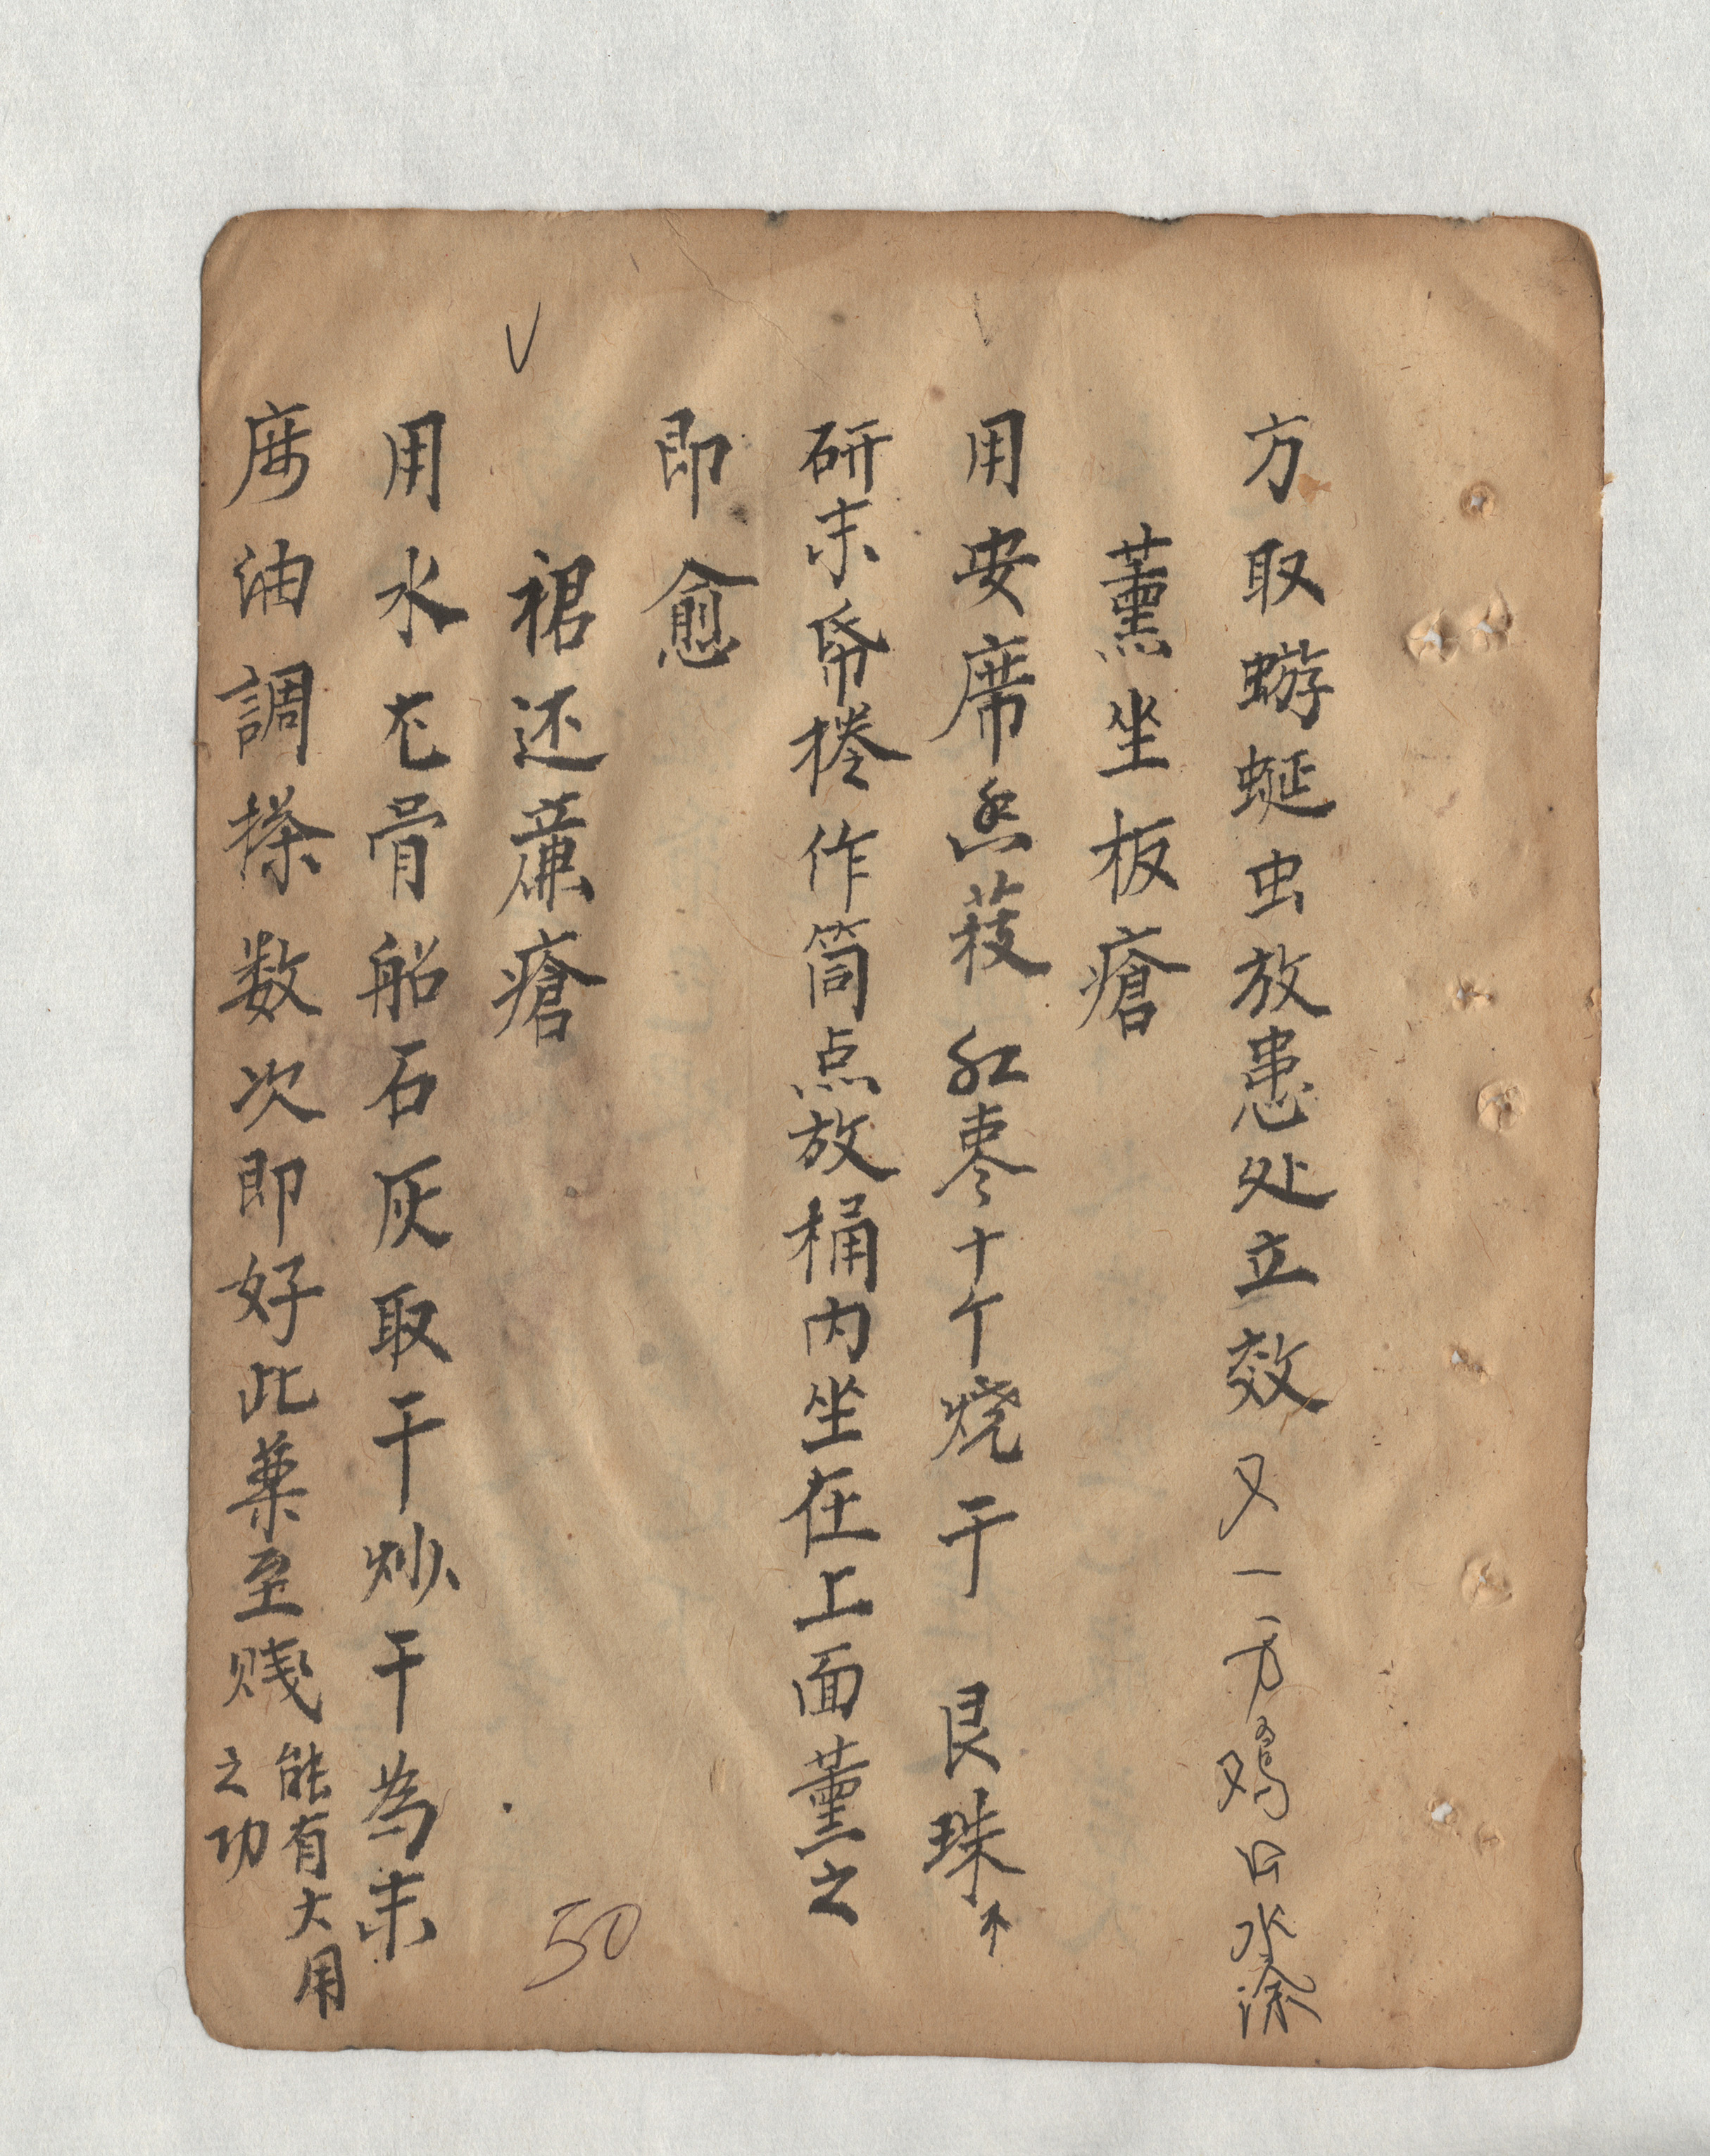 方取蝣蜒虫放患处立效 又一方鸡口水涂
薰坐板瘡
用安席 红枣十个烧干 艮珠
研末帋捲作筒点放桶内坐在上面薰之
即愈
裙还薕瘡
用水 骨船石灰取干炒干為末
油調搽数次即好此薬至贱能有大用之功
50